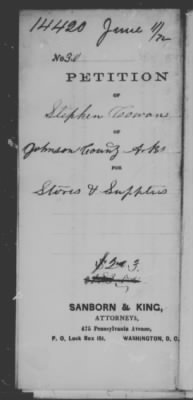 14420 June 11/72
No 38
PETITION
OF
Stephen Cowans
OF
Johnson County Arks
FOR
Stores & Supplies
$203.
SANBORN & KING,
ATTORNEYS,
475 Pennsylvania Avenue,
P. O. Lock Box 154. WASHINGTON, D. C.